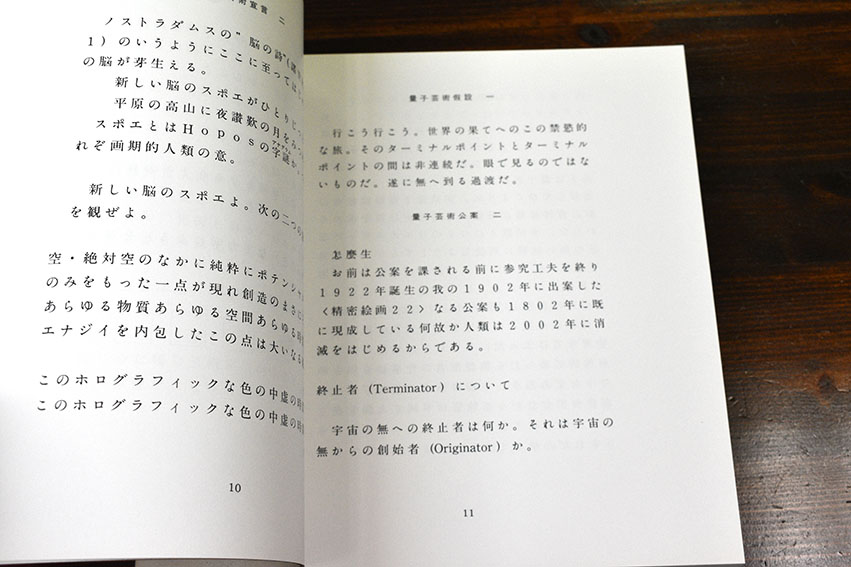 術宣言 二
ノストラダムスの"脳の詩"(諸
1)のいうようにここに至っては
の脳が芽生える。
新しい脳のスポエがひとりじっ
平原の高山に夜讃歎の月をみつ
スポエとはHoposの字謎か
アナグラム
れぞ画期的人類の意。
新しい脳のスポエよ。次の二つの
を観ぜよ。
空・絶対空のなかに純粋にポテンシャ
のみをもった一点が現れ創造のまさに
あらゆる物質あらゆる空間あらゆる時
エナジイを内包したこの点は大いなる
このホログラフィックな色の中虚の時
このホログラフィックな色の中虚の時
10
量子芸術假設 一
行こう行こう。世界の果てへのこの禁慾的
な旅。そのターミナルポイントとターミナル
ポイントの間は非連続だ。眼で見るのではな
いものだ。遂に無へ到る過渡だ。
量子芸術公案 二
怎麼生
お前は公案を課される前に参究工夫を終り
1922年誕生の我の1902年に出案した
〈精密絵画22〉なる公案も1802年に既
に現成している何故か人類は2002年に消
滅をはじめるからである。
終止者 (Terminator) について
宇宙の無への終止者は何か。それは宇宙の
無からの創始者 (Originator) か。
11